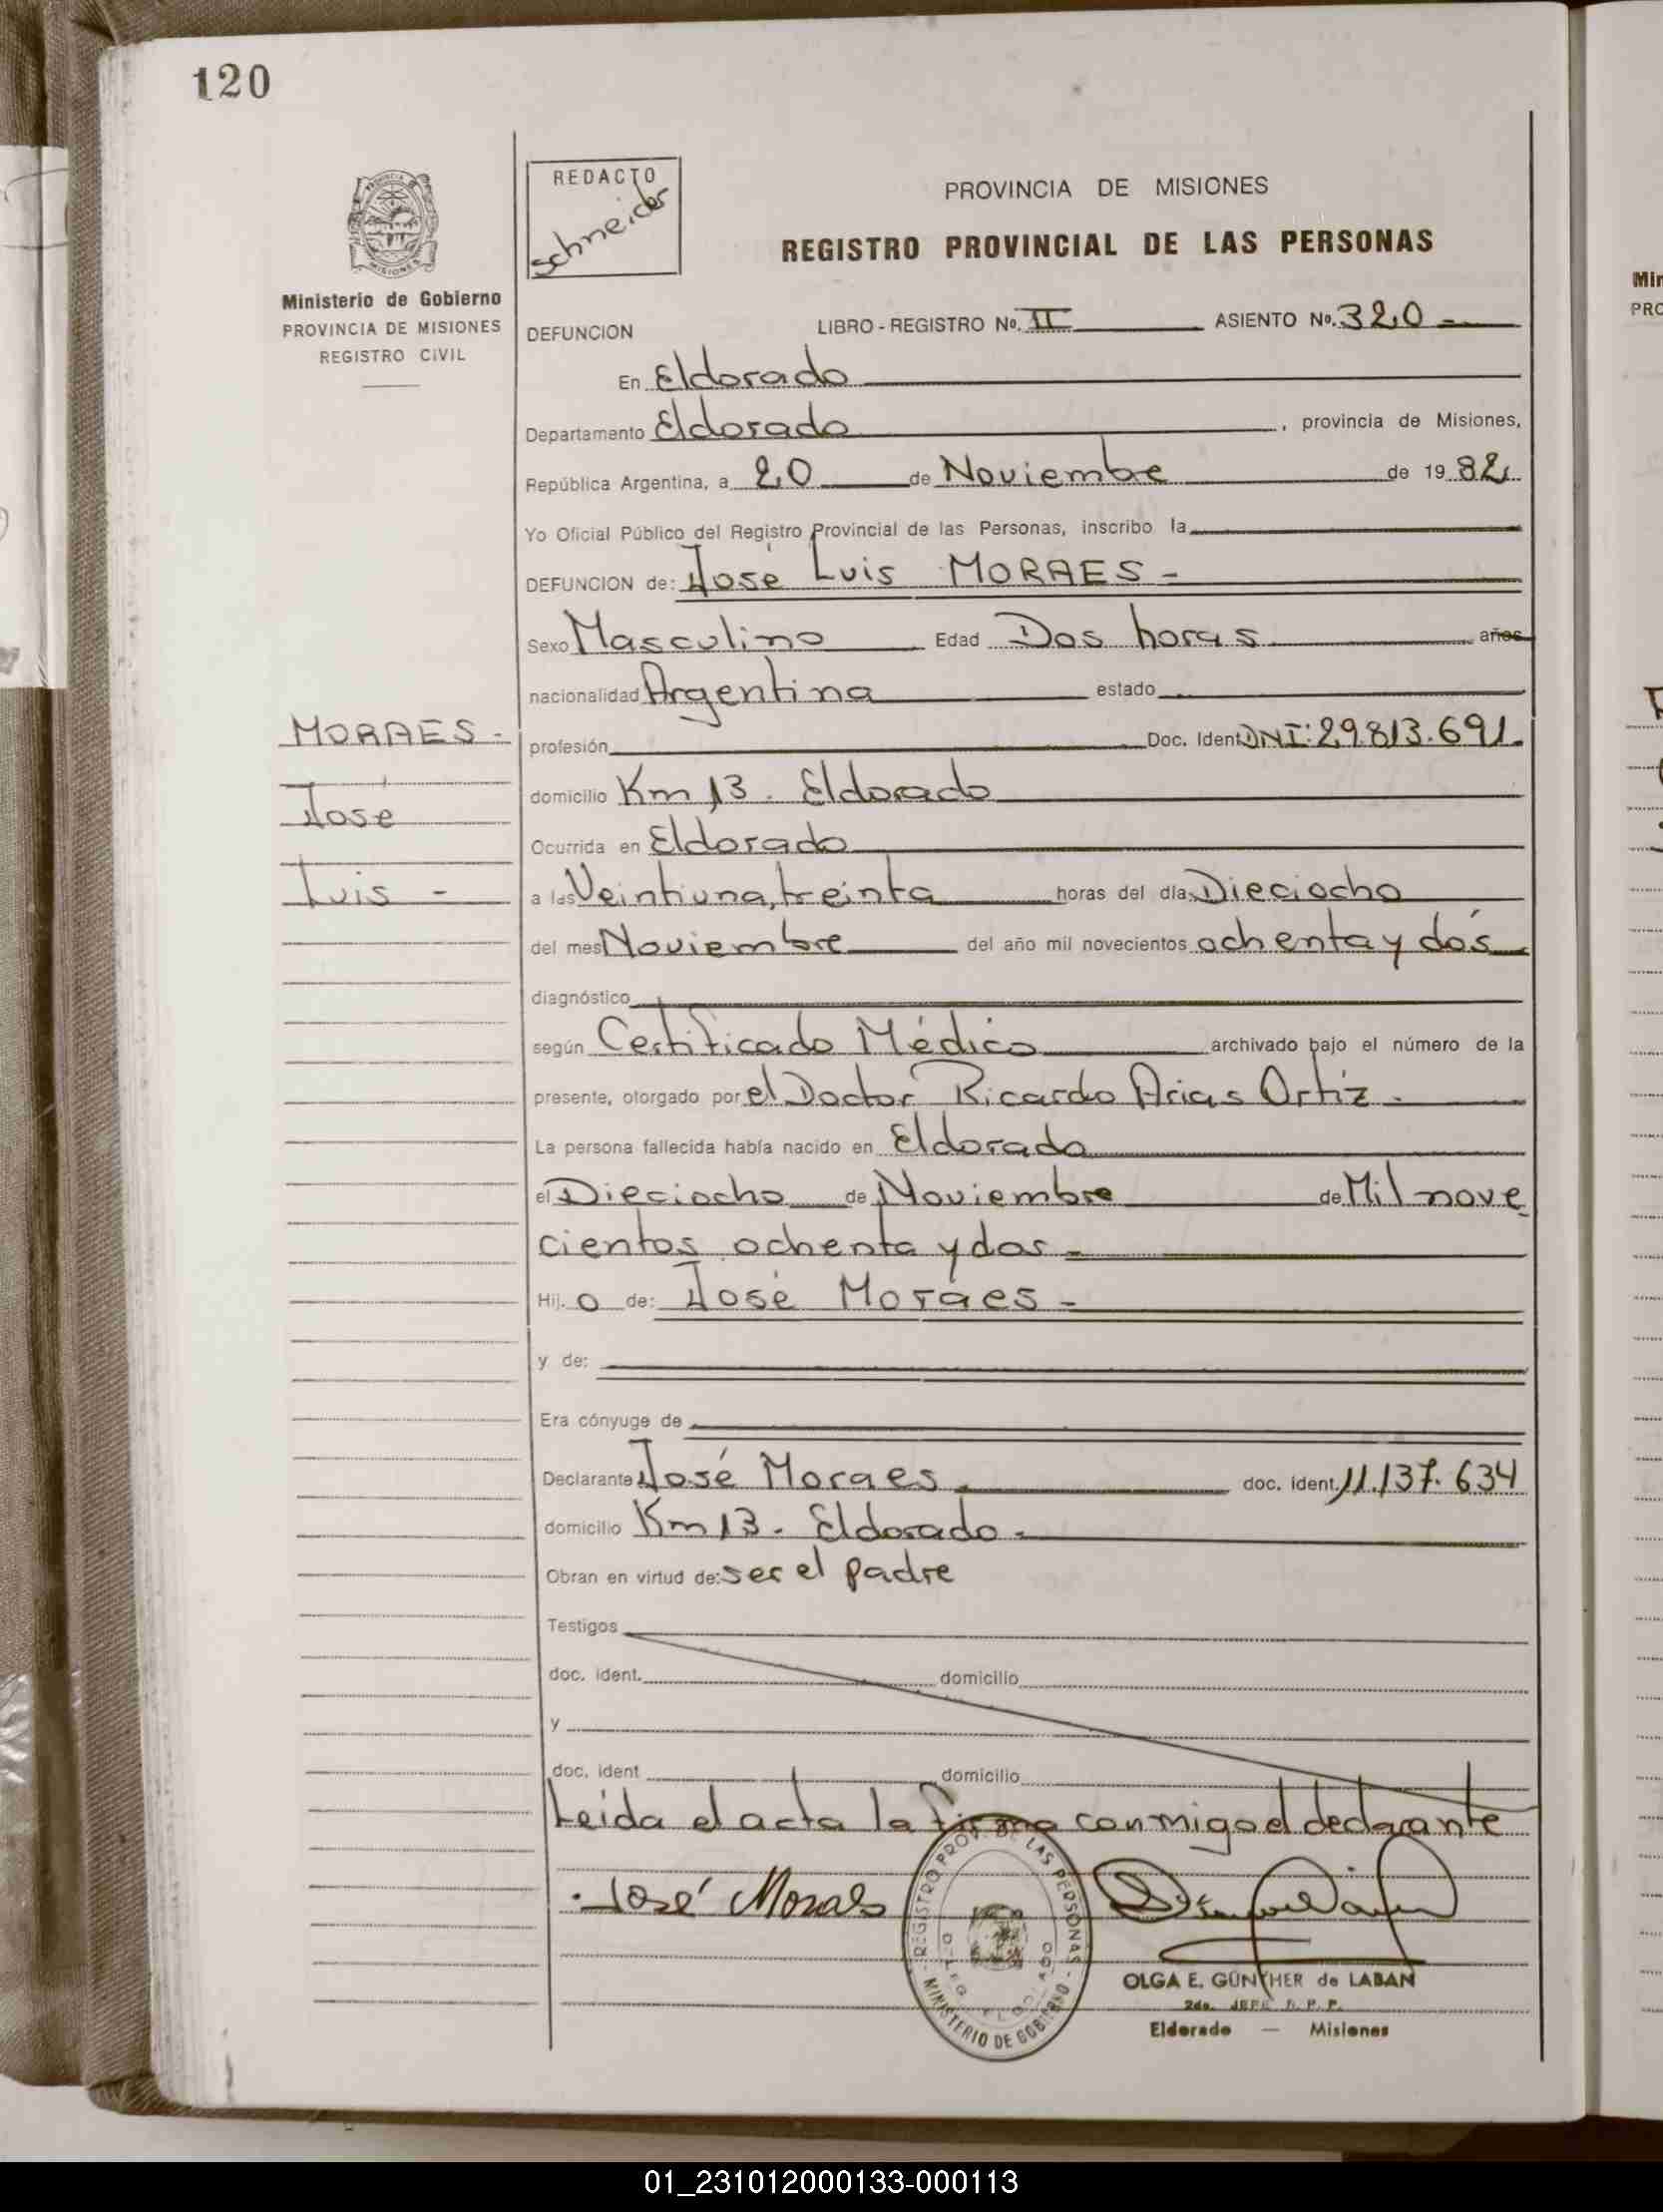 120
REDACTO
Schneider
PROVINCIA DE MISIONES
REGISTRO PROVINCIAL DE LAS PERSONAS
Ministerio de Gobierno
PROVINCIA DE MISIONES
REGISTRO CIVIL
DEFUNCION LIBRO - REGISTRO No. II ASIENTO No. 320 -
En Eldorado
Departamento Eldorado, provincia de Misiones,
República Argentina, a 20 de Noviembre de 19 82
Yo Oficial Público del Registro Provincial de las Personas, inscribo la
DEFUNCION de: José Luis MORAES -
Sexo Masculino Edad Dos horas años
nacionalidad Argentina estado
MORAES -
José
Luis -
profesión Doc. Ident DNI: 29.813.691.
domicilio Km 13. Eldorado
Ocurrida en Eldorado
a las Veintiuna, treinta horas del día Dieciocho
del mes Noviembre del año mil novecientos ochenta y dós
diagnóstico
según Certificado Médico archivado bajo el número de la
presente, otorgado por el Doctor Ricardo Arias Ortiz -
La persona fallecida había nacido en Eldorado
el Dieciocho de Noviembre de Mil nove
cientos ochenta y dos -
Hij. o de: José Moraes -
y de:
Era cónyuge de
Declarante José Moraes doc. ident. 11.137.634
domicilio Km 13 - Eldorado -
Obran en virtud de: ser el padre
Testigos
doc. ident. domicilio
y
doc. ident domicilio
Leida el acta la firma conmigo el declarante
José Moraes
REGISTRO PROV. DE LAS PERSONAS - MINISTERIO DE GOBIERNO -
OLGA E. GÜNTHER de LABAN
2do. JEFE R. P. P.
Eldorado — Misiones
Min
PRO
01_231012000133-000113